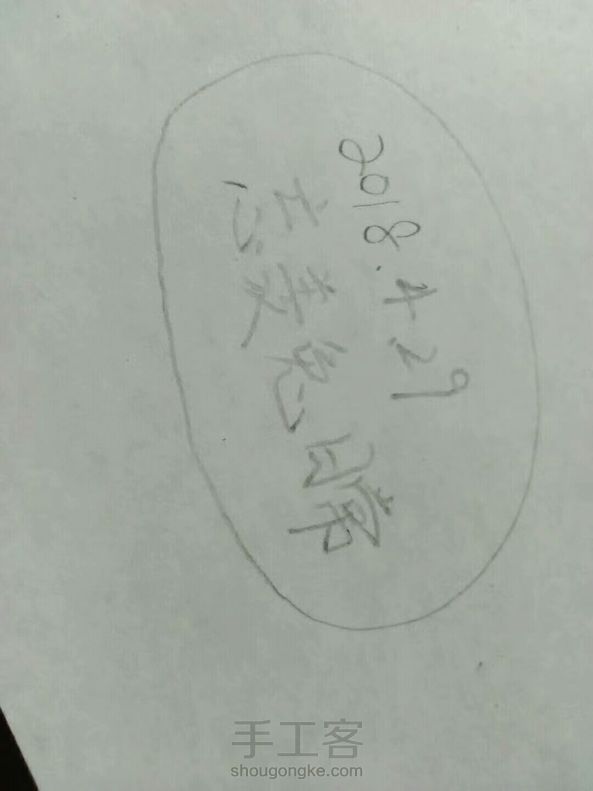 2018.4.29
忘兔日常
手工客
shougongke.com